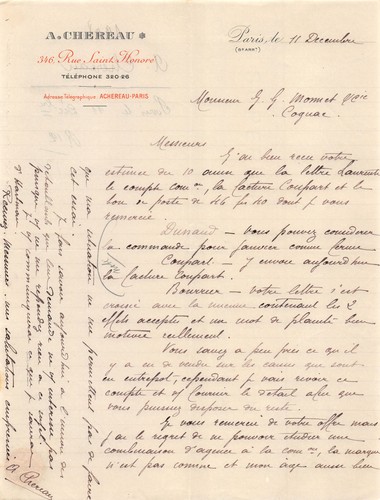 A. CHEREAU
346, Rue Saint-Honoré
TÉLÉPHONE 320-26
Adresse Télégraphique ACHEREAU-PARIS
Paris, le 11 Decembre
Monsieur G. G. Monnet & Cie
Cognac
Messieurs
J'ai bien reçu votre
estimée du 10 ainsi que la lettre
le compte la facture Coupart et le
bon de poste de dont je vous
remercie.
Durand — Vous pouvez considérer
la commande pour janvier comme ferme
Coupart — J'envoie aujourd'hui
la facture Coupart.
Bourrier — votre lettre s'est
croisée avec la mienne contenant les 2
effets acceptés et un mot de plainte bien
motivée réellement.
Vous savez à peu près ce qu'il
y a eu de vendu sur les caisses qui sont
en entrepôt, cependant je vais revoir ce
compte et vous fournir le détail afin que
vous puissiez disposer du reste.
Je vous remercie de votre offre mais
j'ai le regret de ne pouvoir étudier une
combinaison d'agence à la la marque
n'est pas connue et mon âge aussi bien
que ma situation ne me permettent pas de faire
cet essai.
Je fais savoir aujourd'hui à l'ami des
que leur demande ne vous intéresse pas
puisque vous ne me répondez rien à ce sujet
Recevez Messieurs mes salutations empressées
A Chereau